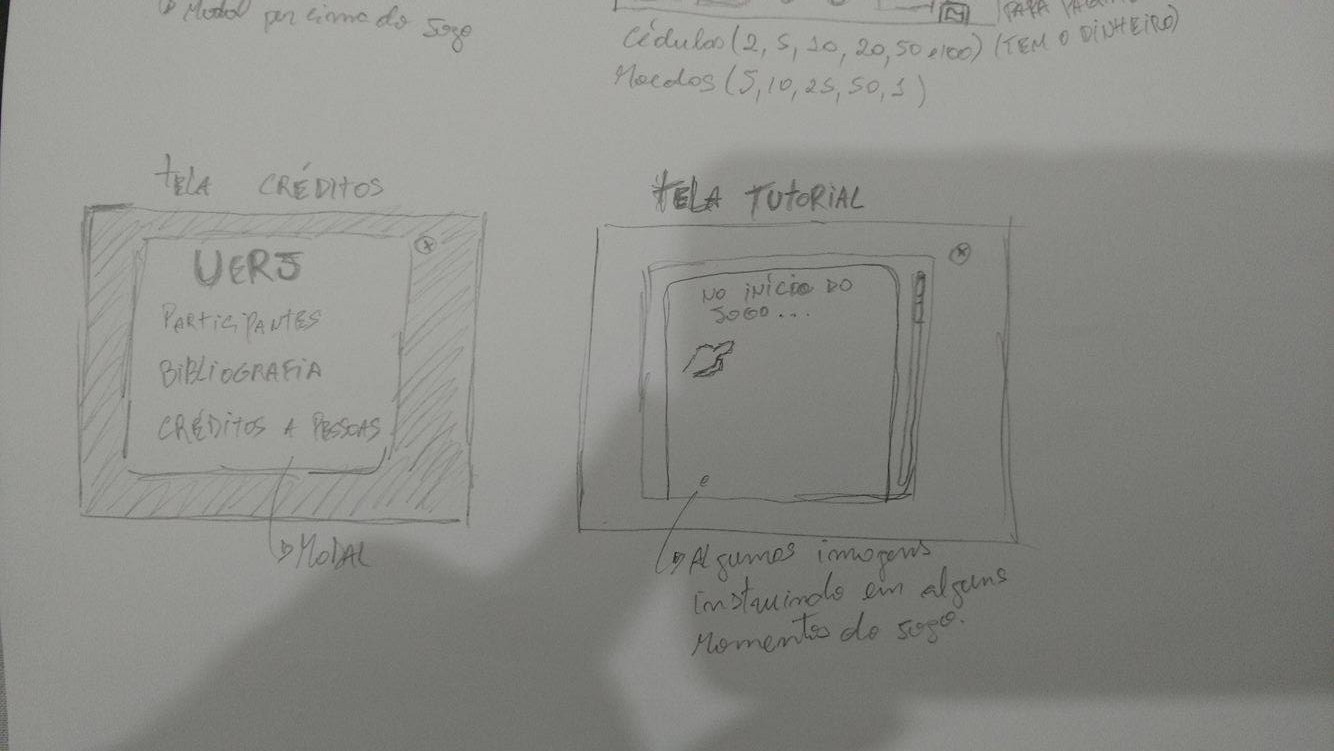 Modal por cima do jogo
PARA
Cédulas (2, 5, 10, 20, 50 e 100) (TEM O DINHEIRO)
Moedas (5, 10, 25, 50, 1)
TELA CRÉDITOS
UERJ
PARTICIPANTES
BIBLIOGRAFIA
CRÉDITOS A PESSOAS
MODAL
TELA TUTORIAL
NO INÍCIO DO
JOGO...
Algumas imagens
instruindo em alguns
momentos do jogo.